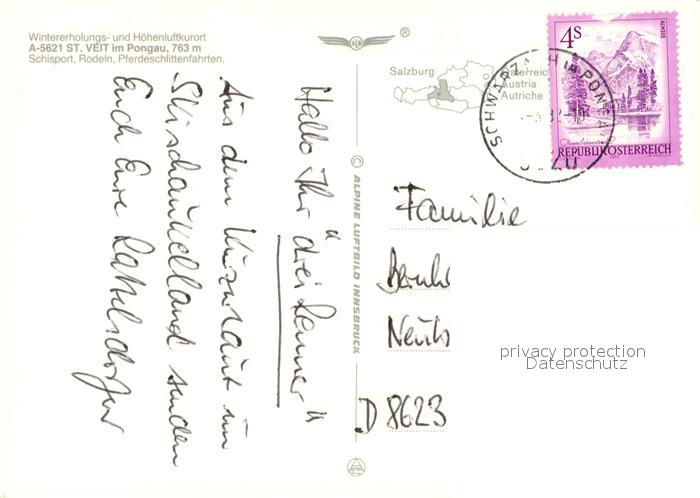 Wintererholungs- und Höhenluftkurort
A-5621 ST. VEIT im Pongau, 763 m
Schisport, Rodeln, Pferdeschlittenfahrten.
Hallo Ihr "drei Renner"
Aus dem Kurzurlaub im
Skischaukelland senden
Euch Eure
© ALPINE LUFTBILD INNSBRUCK
®
Salzburg
Österreich
Austria
Autriche
SCHWARZACH IM PONGAU
4S
ALMSEE
REPUBLIK ÖSTERREICH
Familie
D 8623
privacy protection
Datenschutz